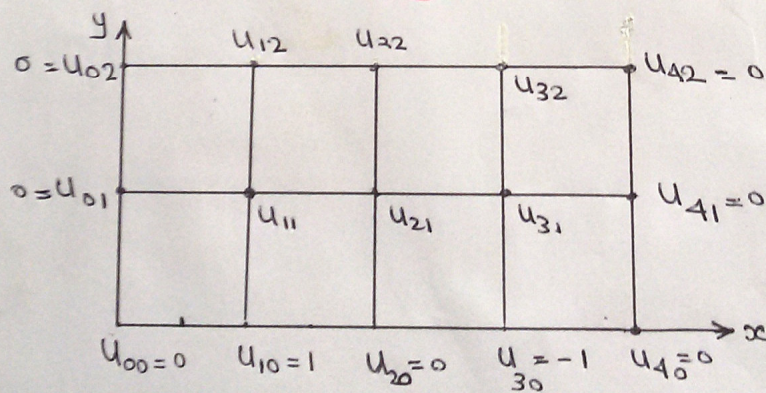 y
u12 u22
0 = u02
u32
u42 = 0
0 = u01
u11
u21
u31
u41 = 0
x
u00 = 0
u10 = 1
u20 = 0
u30 = -1
u40 = 0